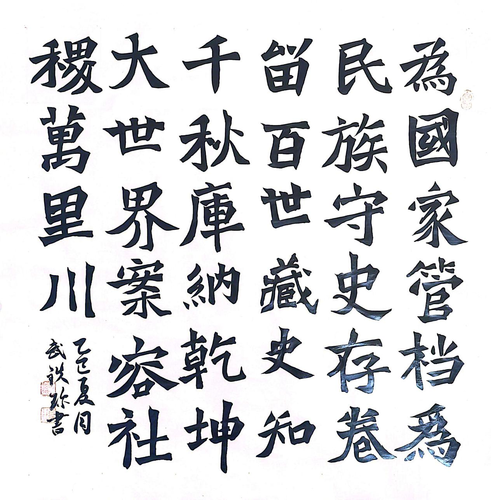 為國家管档為
民族守史存卷
留百世藏史知
千秋庫納乾坤
大世界案容社
稷萬里川
乙巳夏月
武鉄書